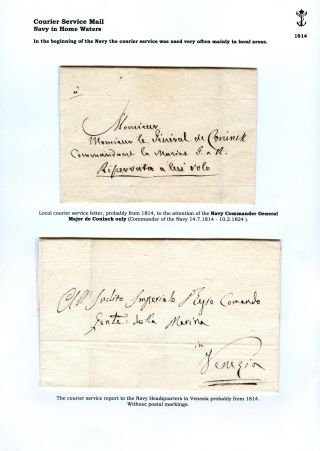 Courier Service Mail
Navy in Home Waters
In the beginning of the Navy the courier service was used very often mainly in local areas.
1814
Monsieur
Monsieur le Général de Coninck
Commandant la Marine I. e R.
Riservata a lui solo
Local courier service letter, probably from 1814, to the attention of the Navy Commander General
Major de Coninck only (Commander of the Navy 14.7.1814 - 10.2.1824 ).
All' Inclito Imperiale Regio Comando
della Marina
in
Venezia
The courier service report to the Navy Headquarters in Venezia probably from 1814.
Without postal markings.